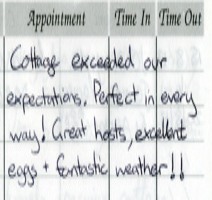 Appointment Time In Time Out
Cottage exceeded our
expectations. Perfect in every
way! Great hosts, excellent
eggs + fantastic weather!!